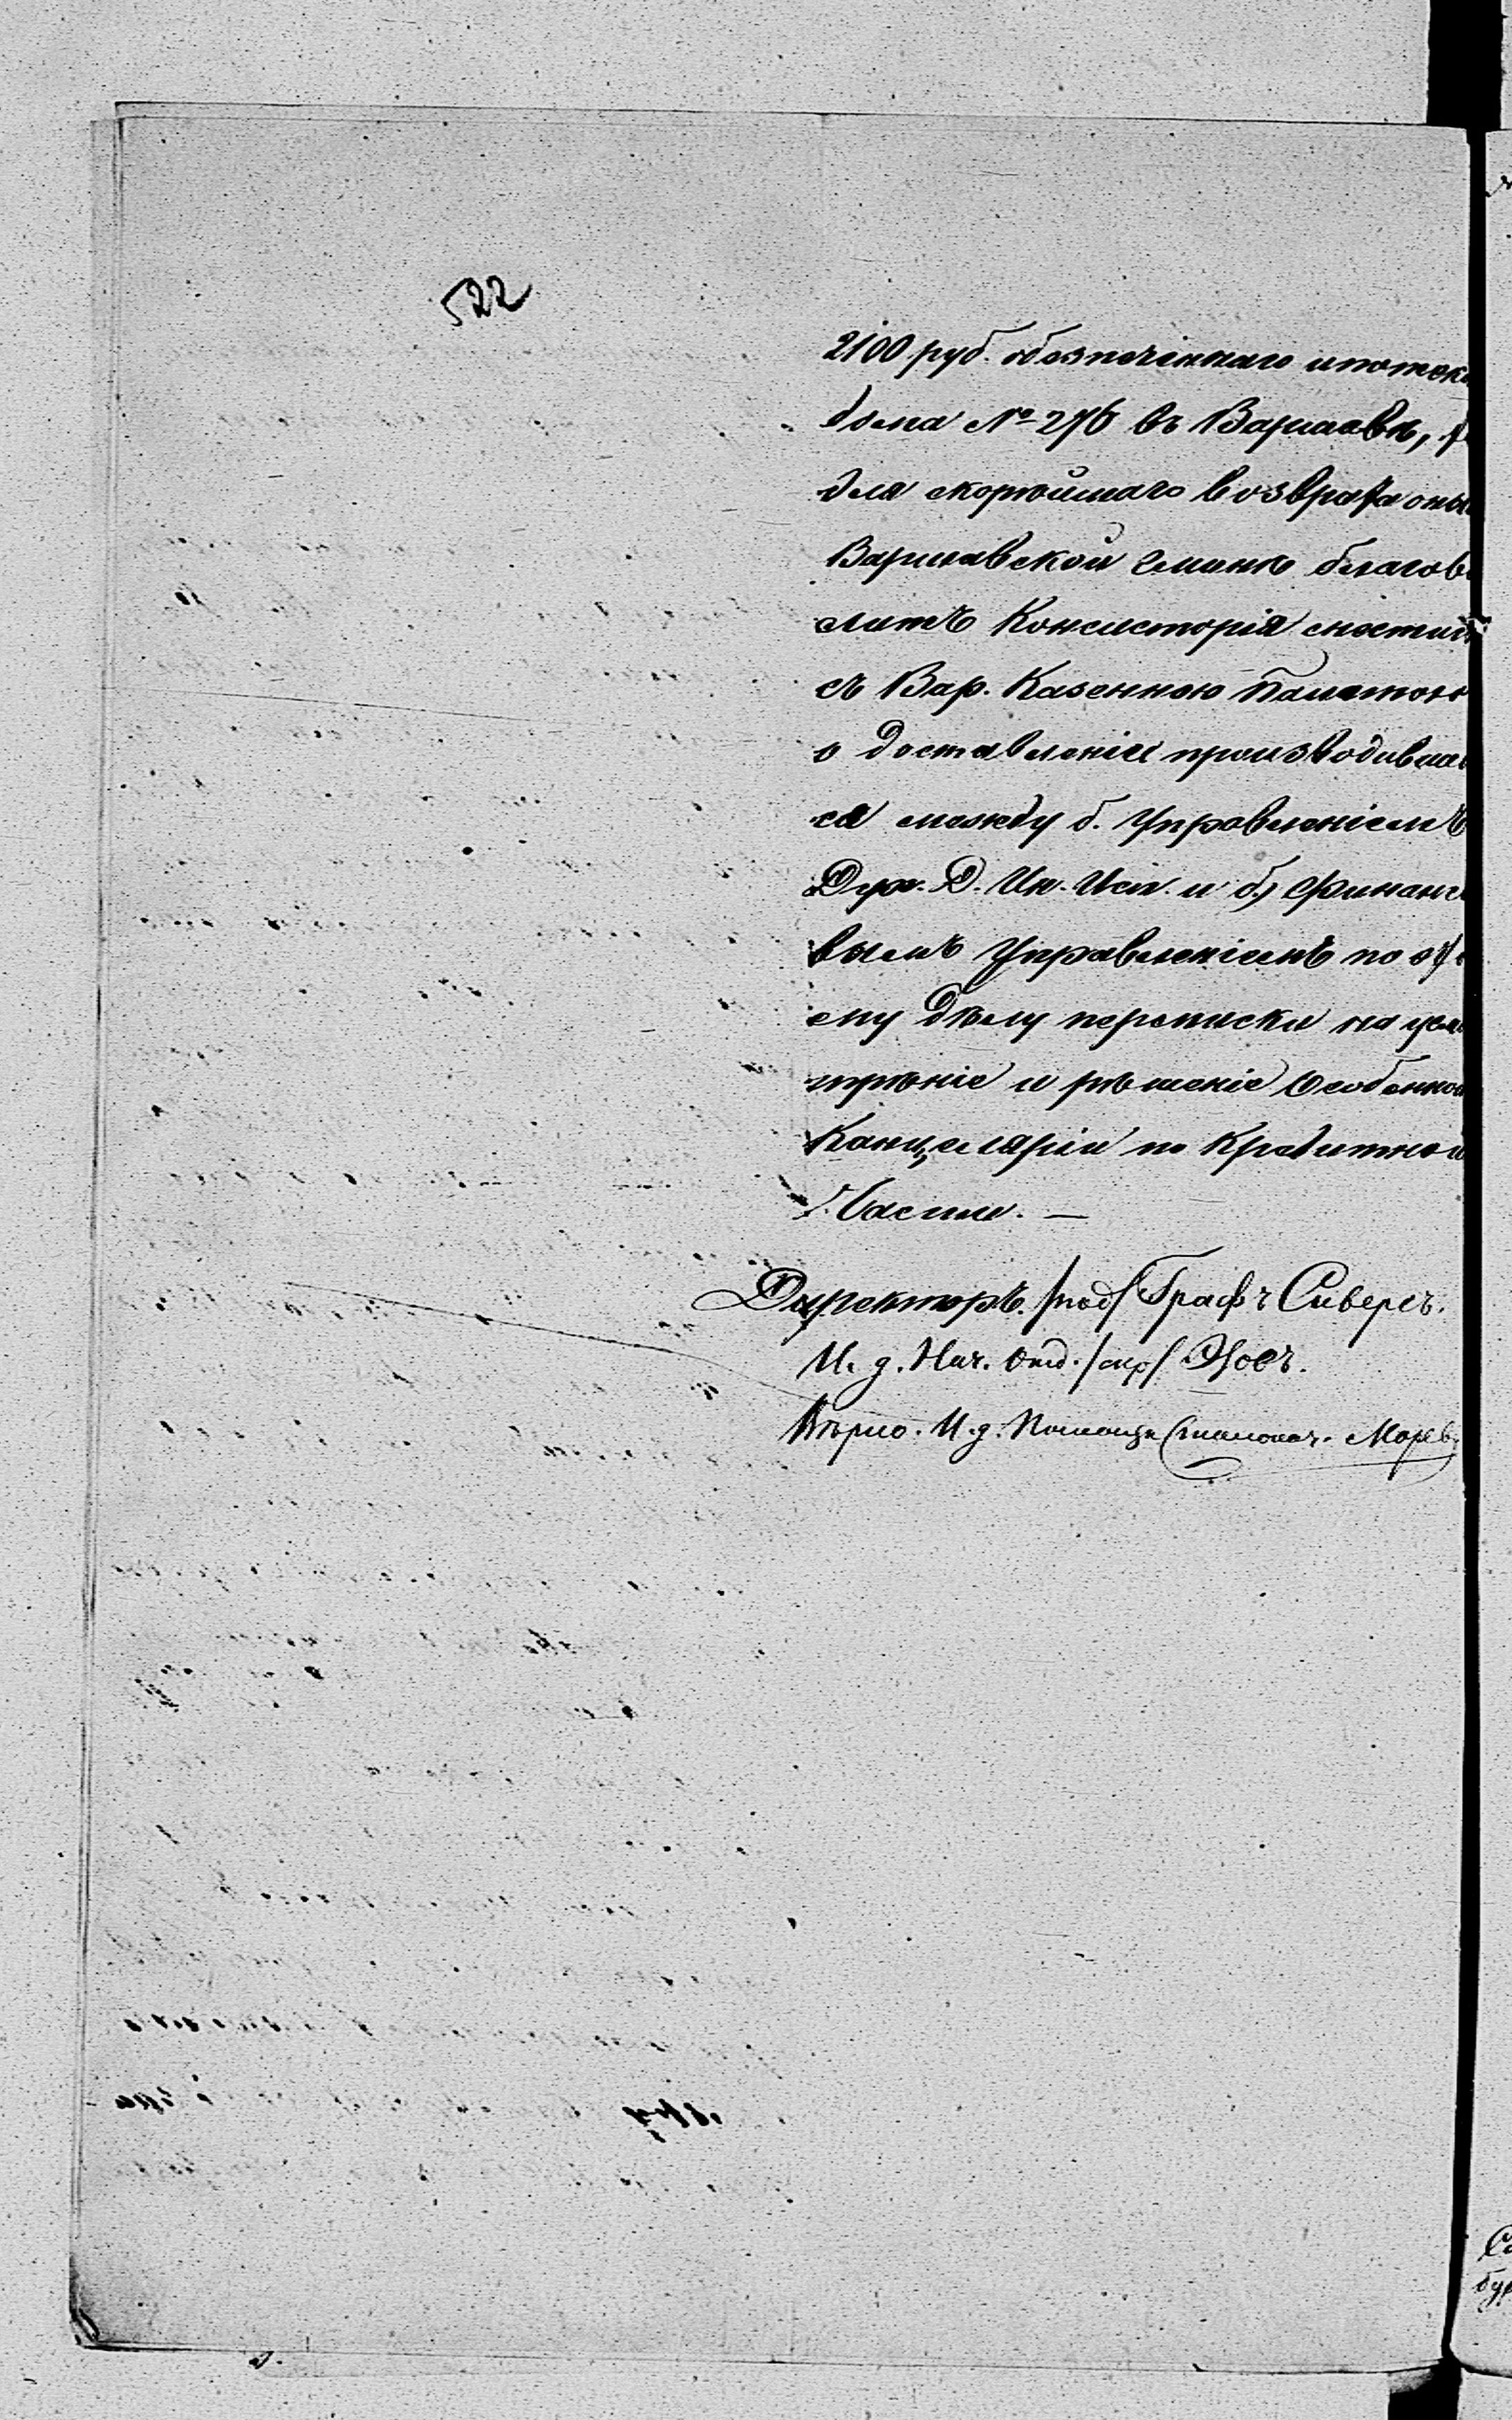 522
2100 руб. обезпеченнаго ипотек
дома № 276 въ Варшавѣ,
для скорѣйшаго возврата оны
Варшавской Гминѣ благов
литъ Консисторія снестись
съ Вар. Казенною Палатою
о доставленіи производивша
ся между б. Управленіемъ
Дух. Д. Ин. Исп. и б. Финанс
вымъ Управленіемъ по
ему дѣлу переписки на усм
трѣніе и рѣшеніе Особенной
Канцеляріи по Кредитной
Части. —
Директоръ /под/ Графъ Сиверсъ.
И. д. Нач. Отд. /скр/
Вѣрно. И. д. Помощн. Столонач.